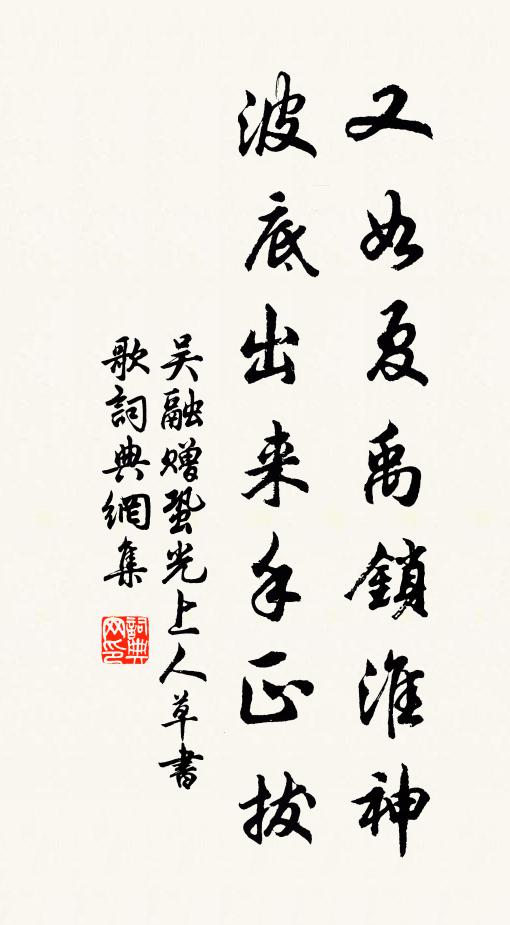 又如夏禹鎖淮神
波底出来手正拔
吴融赠蛩光上人草書
歌詞典網集
詞典網印